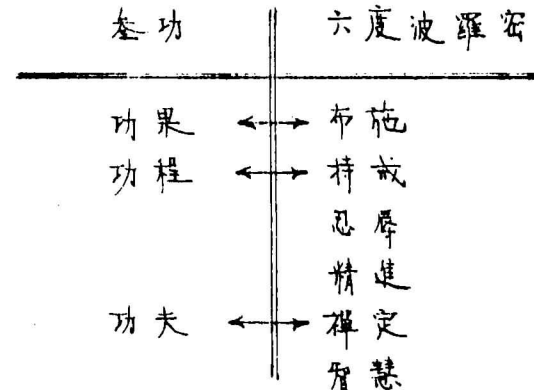 叁功 六度波羅密
功果 ↔ 布施
功程 ↔ 持戒
忍辱
精進
功夫 ↔ 禪定
智慧